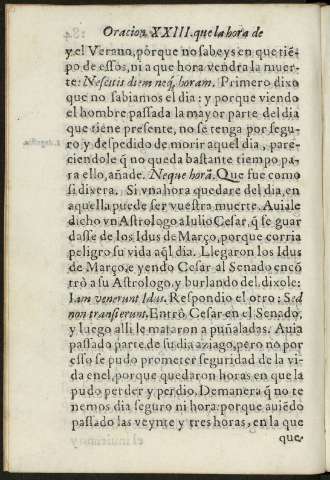 Oracion XXIII. que la hora de
y el Verano, pòrque no sabeys en que tiē-
po de essos, ni a que hora vendra la muer-
te: Nescitis diem neq; horam. Primero dixo
que no sabiamos el dia: y porque viendo
el hombre passada la mayor parte del dia
que tiene presente, no se tenga por segu-
ro y despedido de morir aquel dia, pare-
ciendole q̄ no queda bastante tiempo pa-
ra ello, añade. Neque horā. Que fue como
si dixera. Si vna hora quedare del dia, en
aquella puede ser vuestra muerte. Auiale
dicho vn Astrologo a Iulio Cesar, q̄ se guar
dasse de los Idus de Março, porque corria
peligro su vida aq̄l dia. Llegaron los Idus
de Março, e yendo Cesar al Senado encō
trò a su Astrologo, y burlando del, dixole:
Iam venerunt Idus. Respondio el otro: Sed
non transierunt. Entrò Cesar en el Senado,
y luego alli le mataron a puñaladas. Auia
passado parte de su dia aziago, pero no por
esso se pudo prometer seguridad de la vi-
da en el, porque quedaron horas en que la
pudo perder y perdio. Demanera q̄ no te
nemos dia seguro ni hora: porque auiēdo
passado las veynte y tres horas, en la que
que-